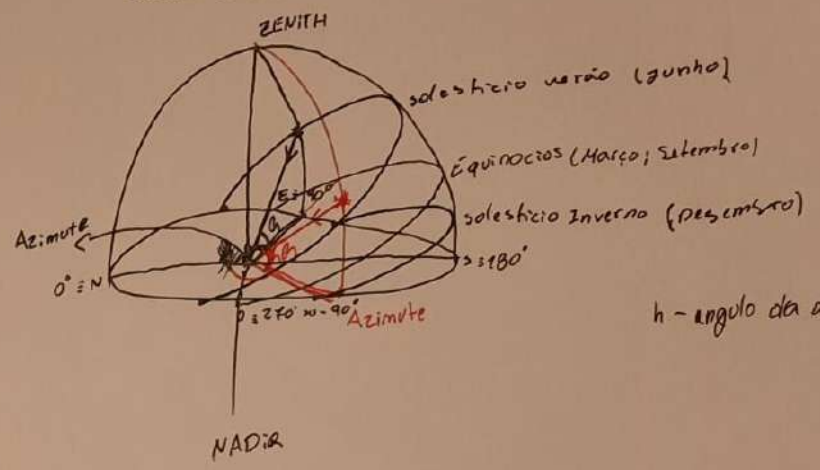 ZENITH
solestício verão (Junho)
Equinocios (Março; Setembro)
solestício Inverno (Desembro)
E = 90°
Azimute
0° = N
S = 180°
O = 270° ou -90°
Azimute
h - angulo da a
NADIR